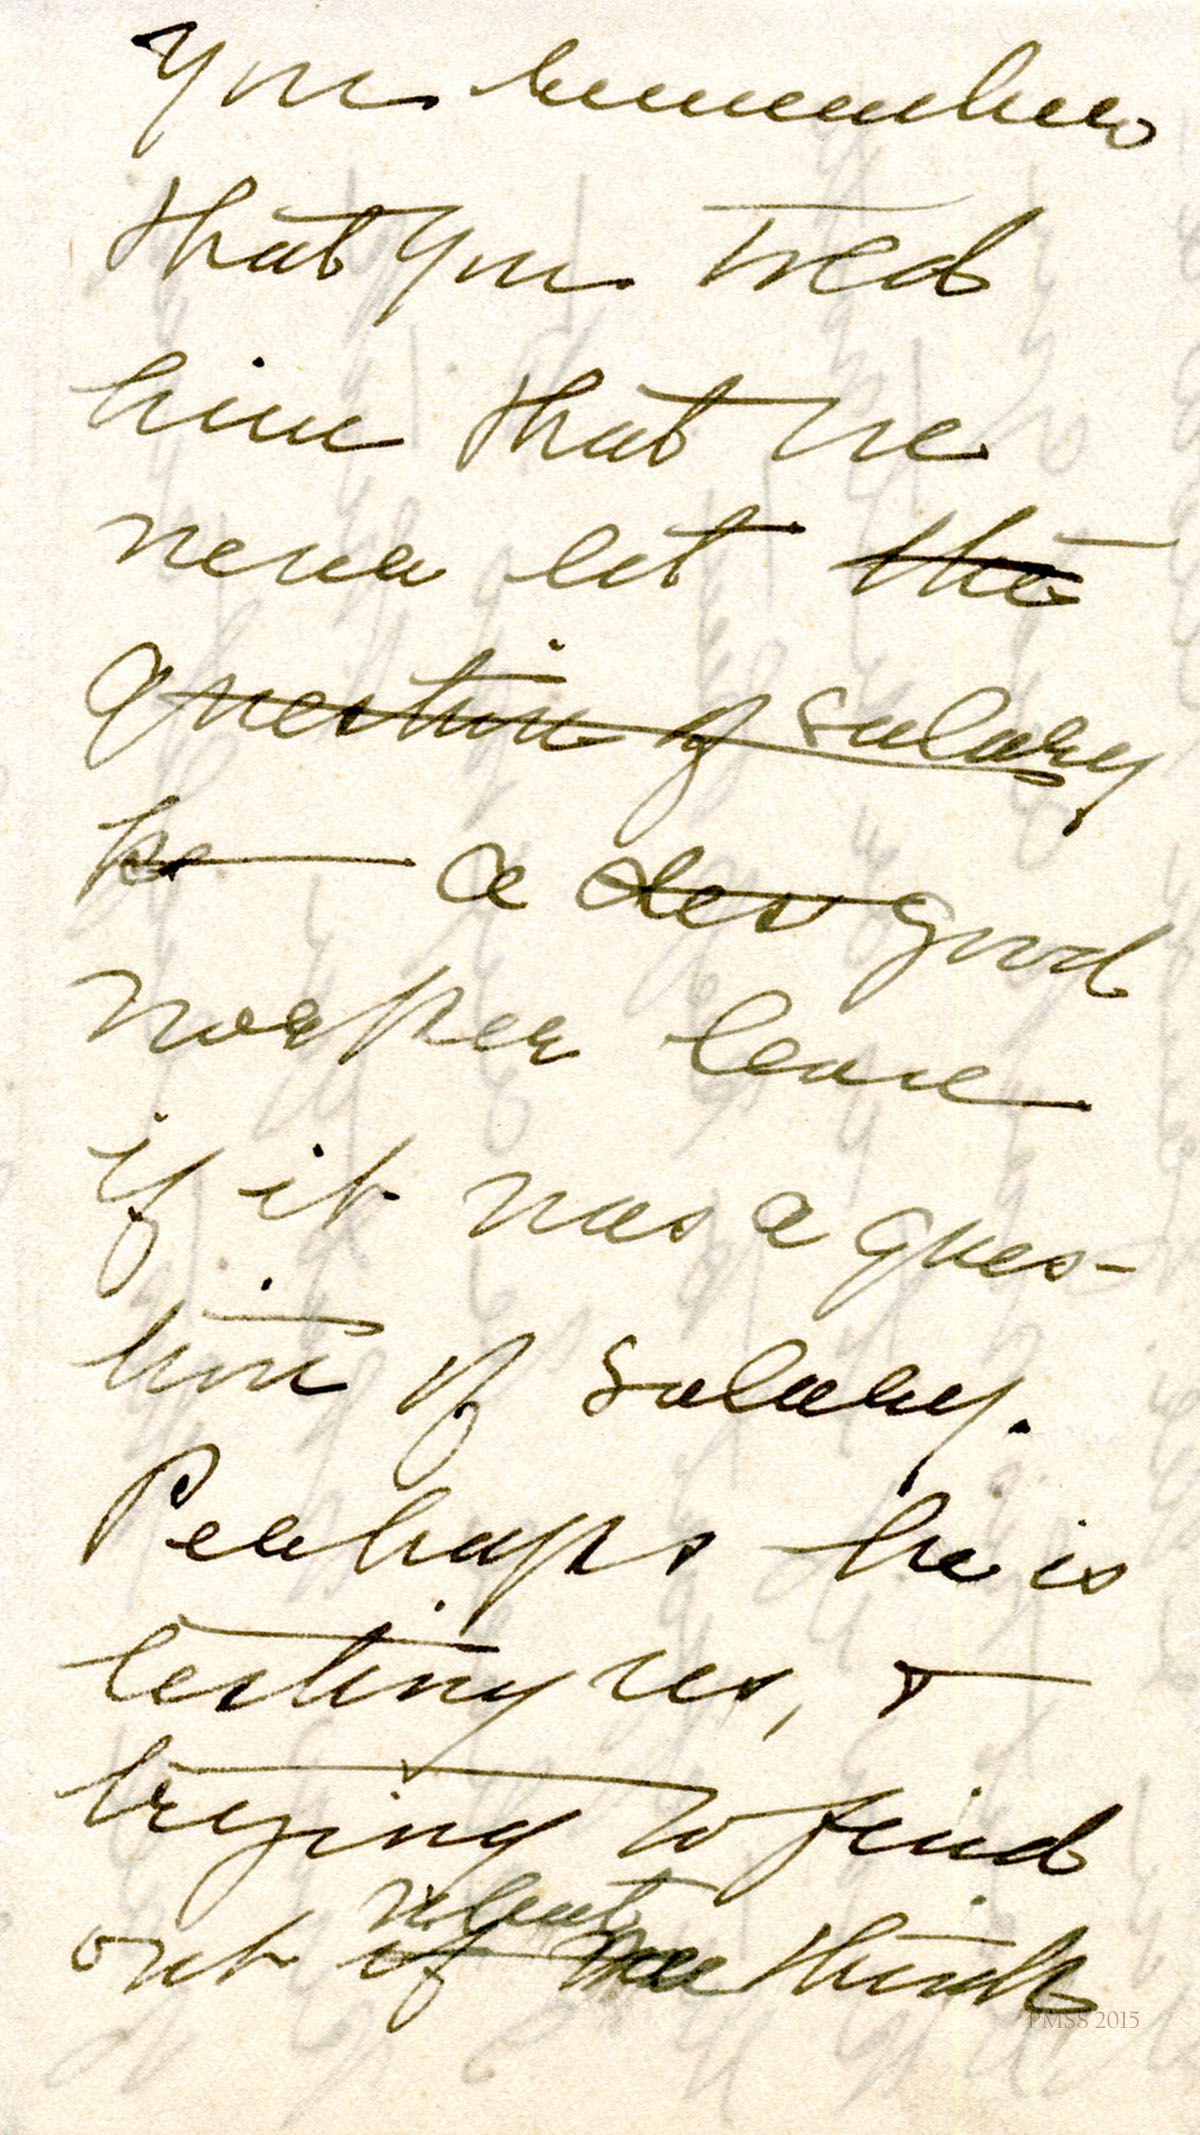 You remember
that you told
him that we
never let the
question of salary
be a des good
worker leave
if it was a ques-
tion of salary.
Perhaps he is
testing us, &
trying to find
out if what we think
PMSS 2015